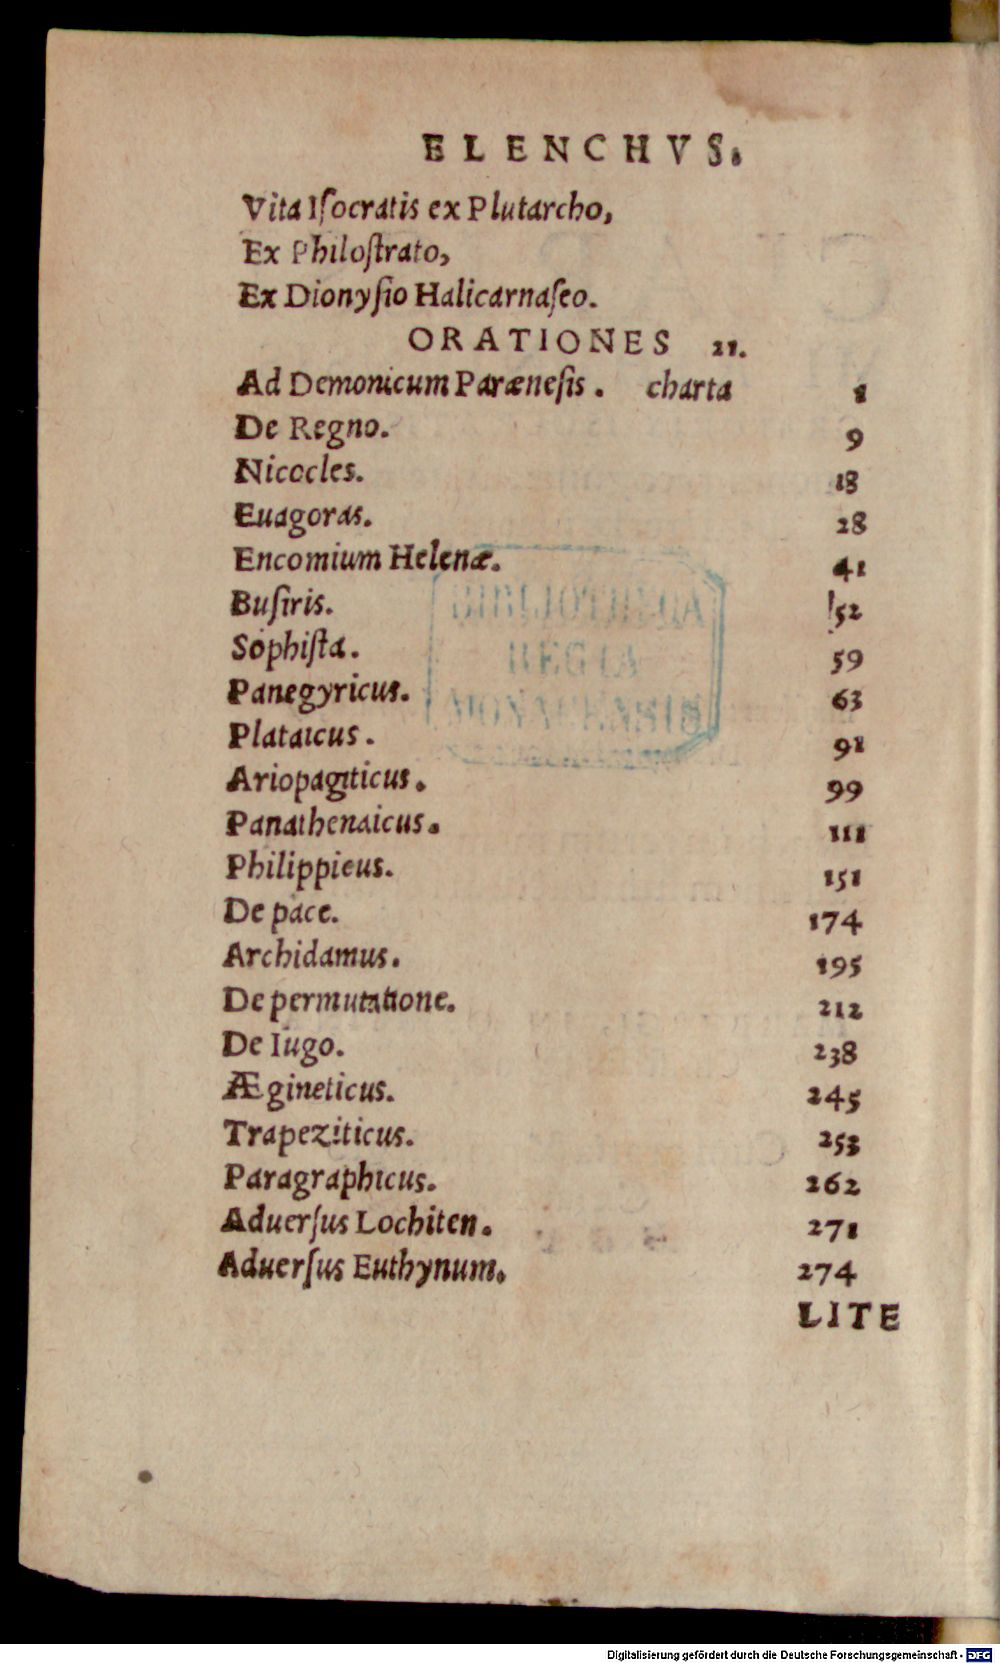 ELENCHVS.
Vita Iſocratis ex Plutarcho,
Ex Philoſtrato,
Ex Dionyſio Halicarnaſeo.
ORATIONES 21.
Ad Demonicum Paræneſis. charta 1
De Regno. 9
Nicocles. 18
Euagoras. 28
Encomium Helenæ. 41
Buſiris. 52
Sophiſta. 59
Panegyricus. 63
Plataicus. 91
Ariopagiticus. 99
Panathenaicus. 111
Philippicus. 151
De pace. 174
Archidamus. 195
De permutatione. 212
De Iugo. 238
Ægineticus. 245
Trapeziticus. 253
Paragraphicus. 262
Aduerſus Lochiten. 271
Aduerſus Euthynum. 274
LITE
BIBLIOTHECA
REGIA
MONACENSIS
Digitalisierung gefördert durch die Deutsche Forschungsgemeinschaft - DFG